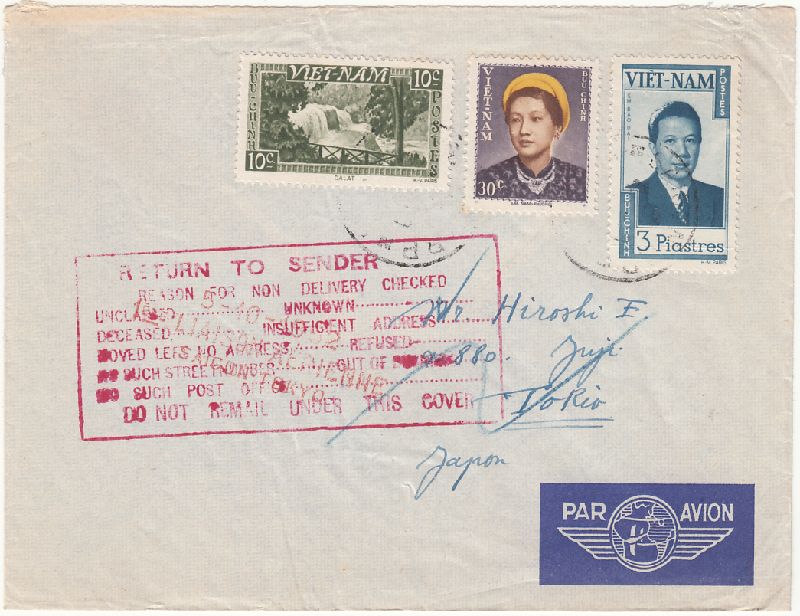 VIỆT-NAM
10c
10c
BƯU-CHÍNH
POSTES
DALAT
VIỆT-NAM
BƯU-CHÍNH
30c
VIỆT-NAM
POSTES
BƯU-CHÍNH
3 Piastres
RETURN TO SENDER
REASON FOR NON DELIVERY CHECKED
UNCLAIMED UNKNOWN
DECEASED INSUFFICIENT ADDRESS
MOVED LEFT NO ADDRESS REFUSED
NO SUCH STREET NUMBER OUT OF
NO SUCH POST OFFICE
DO NOT REMAIL UNDER THIS COVER
Mr Hiroshi F.
880. Fuji
Tokio
Japon
PAR AVION